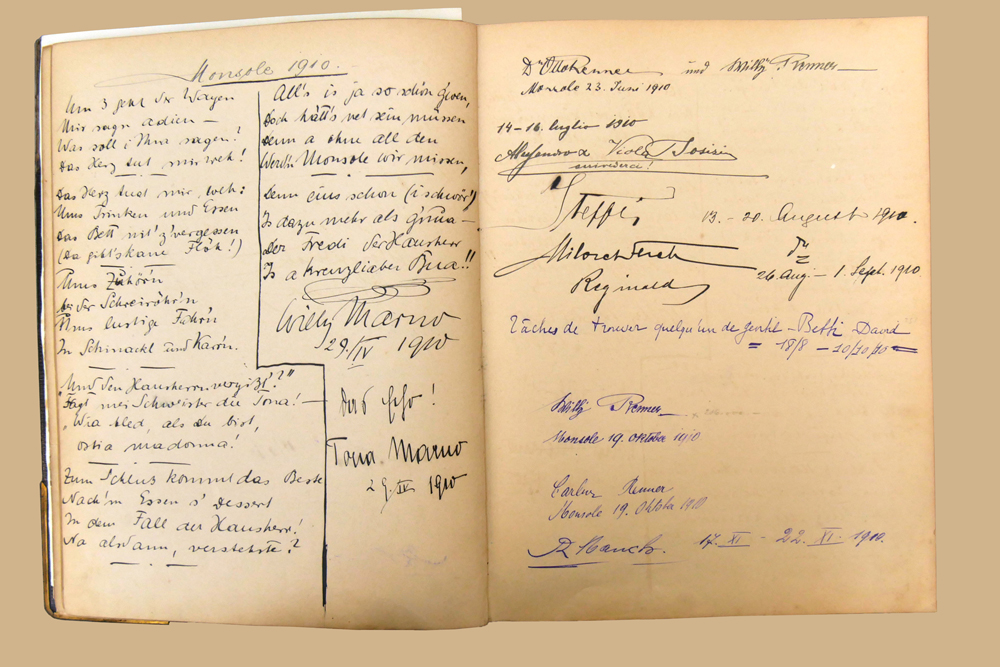 Monsole 1910.
Um 3 geht der Wagen
Mir sagn adieu –
Was soll i Ihna sagen!
Das Herz tut mir weh!
Das Herz tut mir weh:
Ums Trinken und Essen
Das Bett nit z'vergessen
(Da gibt's kane Flöh!)
Ums Zuhör'n
der Schreiröhr'n
Ums lustige Fahr'n
In Schinackl und Karr'n.
Und den Hausherrn vergißt?"
"Fagt mei Schwester die Tona! –
"Wia bled, als du bist,
ostia madonna!
Zum Schluß kommt das Beste
Nach'm Essen s' Dessert
In dem Fall der Hausherr!
Na alsdann, verstehste?
All's is ja so schön gwen,
Doch hätt's net sein müssen
Denn a ohne all den
Werd'n Monsole wir missen,
Denn eins schon (i schwör's)
Is dazu mehr als g'nua –
Der Fredi der Hausherr
Is a kreuzlieber Bua!!
Willy Marno
29./IV 1910
Das Echo!
Tona Marno
29. IV 1910
Dr Otto Renner und Willy Renner
Monsole 23. Juni 1910
14–16. luglio 1910
Alessandro & Viola Sosisio
arrivederci!
Steffi, 13. – 20. August 1910.
26. Aug. – 1. Sept. 1910
Reginald
Tâches de trouver quelqu'un de gentil – Betti David
= 18/8 – 10/10/10 =
Willy Renner
Monsole 19. Oktober 1910
Renner
Monsole 19. Oktober 1910
17. XI – 22. XI – 1910.